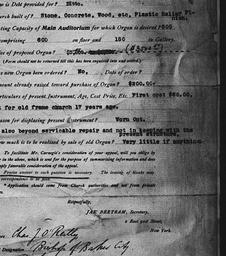 is Debt provided for? Ditto.
Church built of? Stone, Concrete, Wood, etc. Plastic Relief Fi-
nish.
Seating Capacity of Main Auditorium for which Organ is desired? 800
comprising 600 on floor and 150 in Gallery.
of proposed Organ? ($3000)
(Form should not be returned till this has been enquired into and settled.)
new Organ ordered? No. Date of order?
amount already raised toward purchase of Organ? $200.00.
Particulars of present Instrument, Age, Cost Price, Etc. First cost $60.00.
for old frame church 17 years ago.
Reason for displacing present instrument? Worn Out.
also beyond serviceable repair and not in keeping with the
present structure.
How much is to be realized by sale of old Organ? Very little if anything.
To facilitate Mr. Carnegie's consideration of your appeal, will you oblige by
in the above, which is sent for the purpose of summarising information and does
imply favorable consideration of the appeal.
Precise answer to each question is necessary. The leaving of blanks may
correspondence to be
* Application should come from Church authorities and not from private
Respectfully,
JAS. BERTRAM, Secretary,
2 East 91st Street,
New York.
Chas. J. O'Reilly
Designation Bishop of Baker City